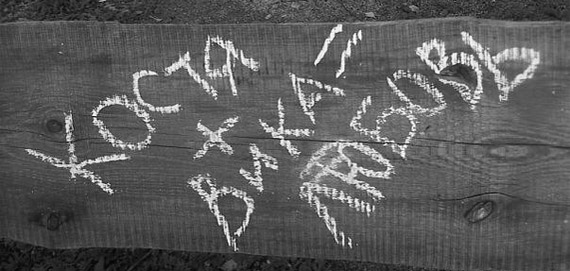 КОСТА
+
ВИКА =
ЛЮБОВЬ